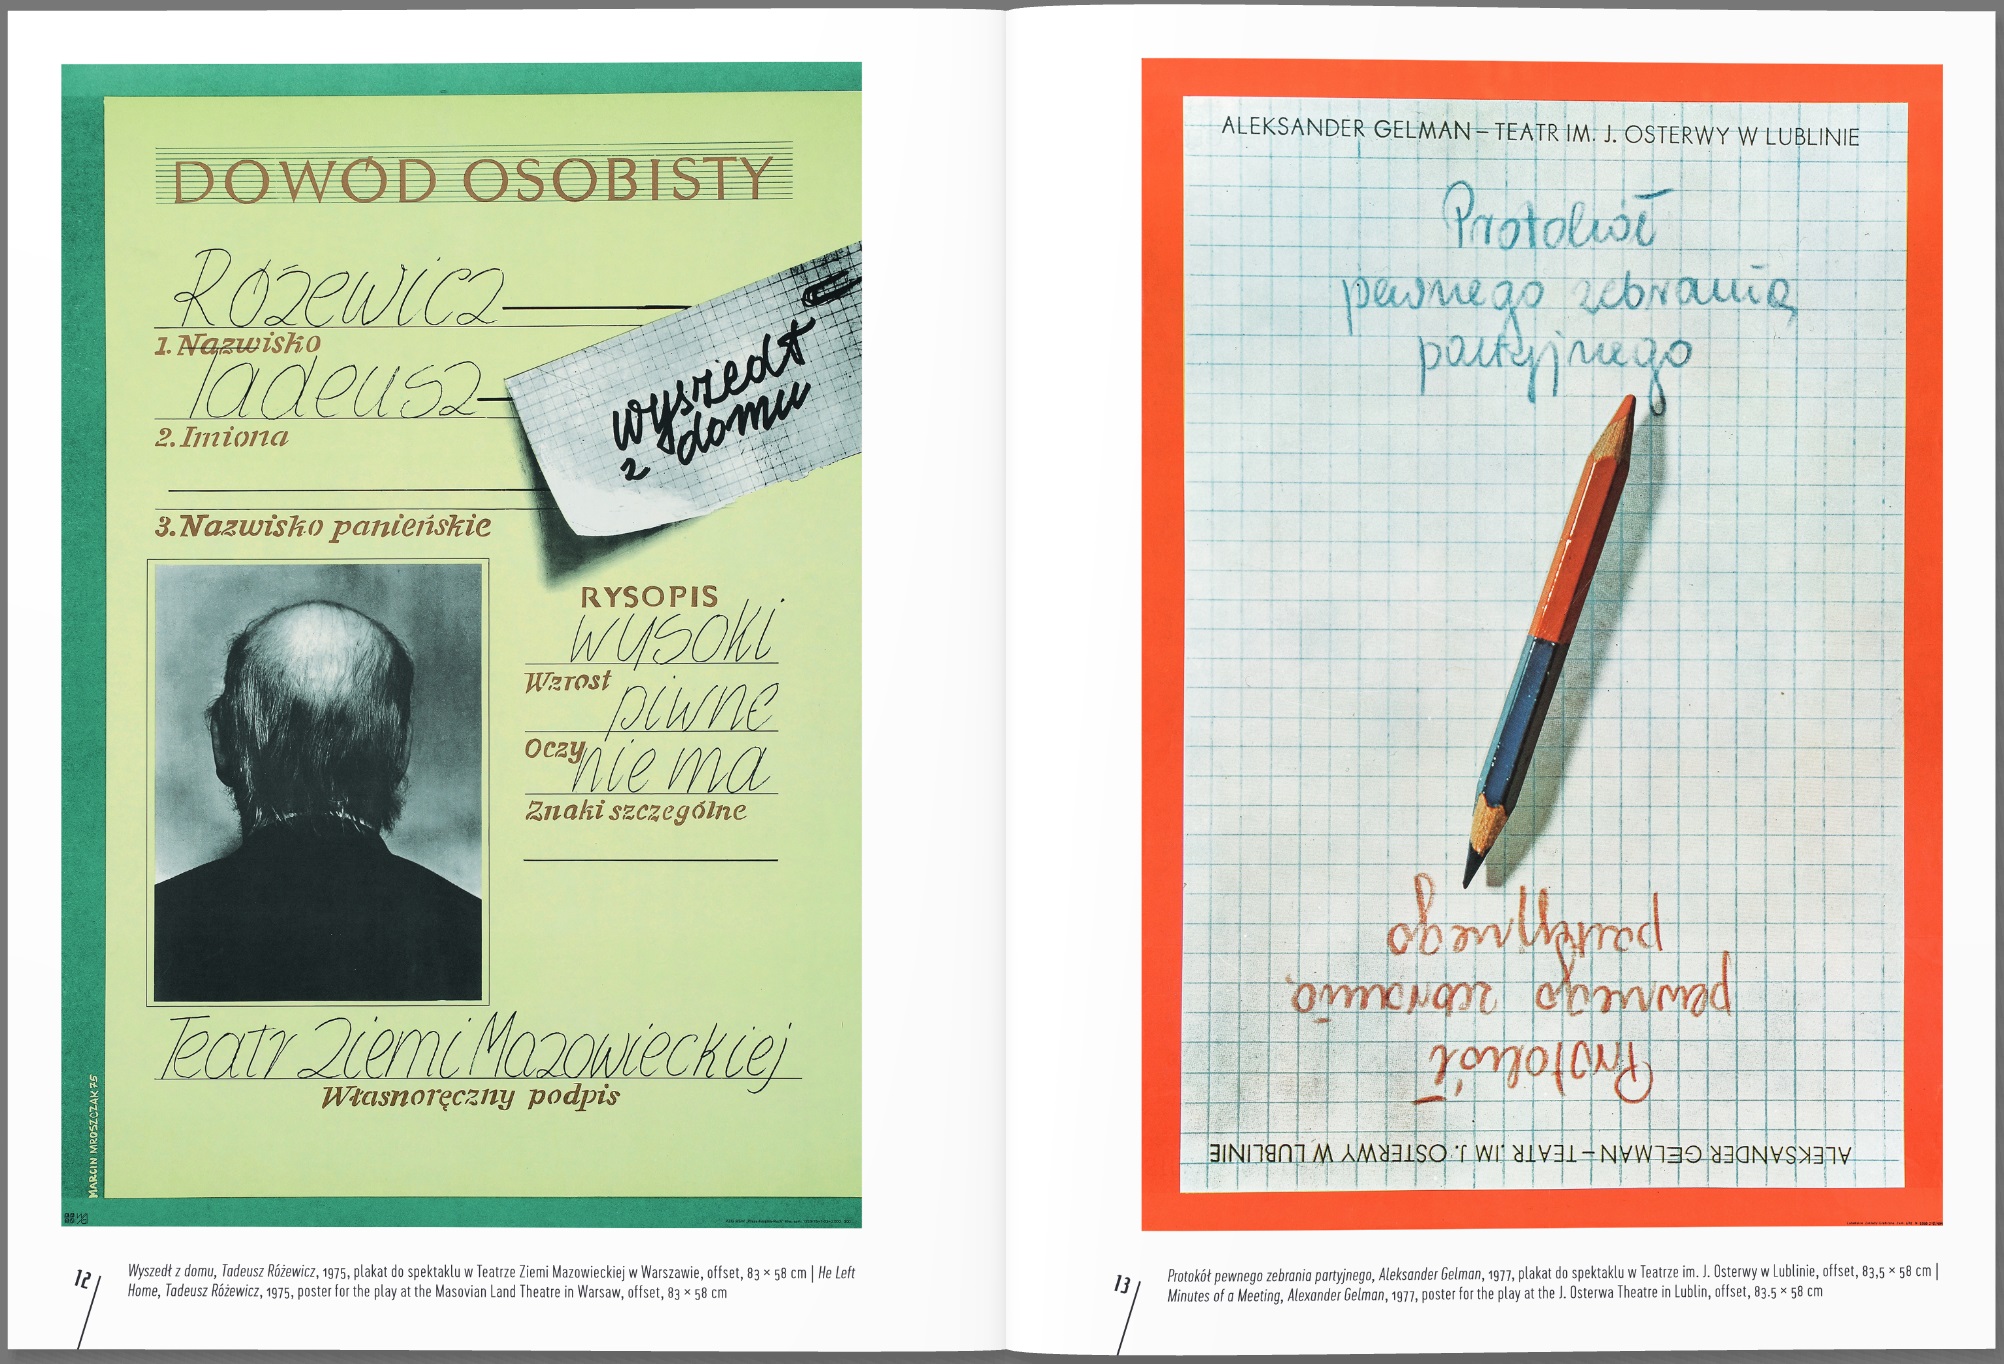 DOWÓD OSOBISTY
Różewicz
1. Nazwisko
Tadeusz
2. Imiona
wyszedł
z domu
3. Nazwisko panieńskie
RYSOPIS
wysoki
Wzrost
piwne
Oczy
nie ma
Znaki szczególne
Teatr Ziemi Mazowieckiej
Własnoręczny podpis
MARCIN MROSZCZAK 75
12
Wyszedł z domu, Tadeusz Różewicz, 1975, plakat do spektaklu w Teatrze Ziemi Mazowieckiej w Warszawie, offset, 83 × 58 cm | He Left
Home, Tadeusz Różewicz, 1975, poster for the play at the Masovian Land Theatre in Warsaw, offset, 83 × 58 cm
ALEKSANDER GELMAN – TEATR IM. J. OSTERWY W LUBLINIE
Protokół
pewnego zebrania
partyjnego
Protokół
pewnego zebrania
partyjnego
ALEKSANDER GELMAN – TEATR IM. J. OSTERWY W LUBLINIE
13
Protokół pewnego zebrania partyjnego, Aleksander Gelman, 1977, plakat do spektaklu w Teatrze im. J. Osterwy w Lublinie, offset, 83,5 × 58 cm |
Minutes of a Meeting, Alexander Gelman, 1977, poster for the play at the J. Osterwa Theatre in Lublin, offset, 83.5 × 58 cm